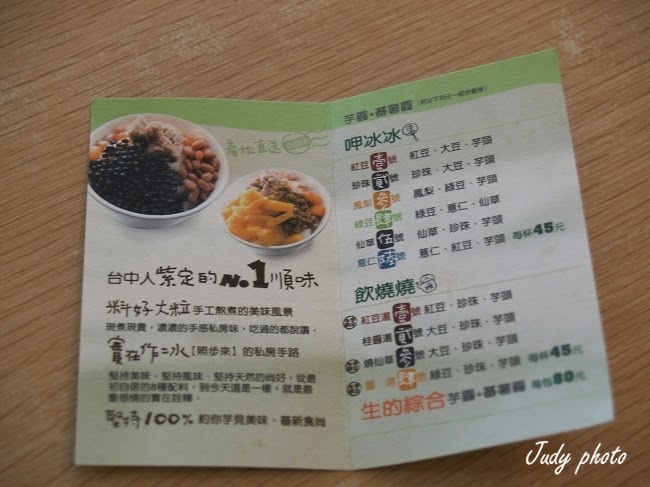 產地直送
台中人紫定的No.1順味
料好大粒 手工熬煮的美味風景
現煮現賣，濃濃的手感私房味，吃過的都說讚。
實在作ㄧ冰【照步來】的私房手路
堅持美味、堅持風味、堅持天然的尚好，從最
初自信的8種配料，到今天還是一樣，就是最
重感情的實在詮釋。
堅持100% 約你芋見美味、蕃新食尚
芋圓+蕃薯圓
呷冰冰
紅豆壹號 紅豆、大豆、芋頭
珍珠貳號 珍珠、大豆、芋頭
鳳梨參號 鳳梨、綠豆、芋頭
綠豆肆號 綠豆、薏仁、仙草
仙草伍號 仙草、珍珠、芋頭
薏仁陸號 薏仁、紅豆、芋頭 每杯45元
飲燒燒
紅豆湯壹號 紅豆、珍珠、芋頭
桂圓湯貳號 大豆、珍珠、芋頭
燒仙草參號 大豆、珍珠、芋頭
薑湯肆號 綠豆、珍珠、芋頭 每杯45元
生的綜合芋圓+蕃薯圓 每包80元
Judy photo